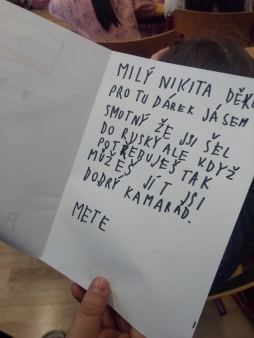 MILÝ NIKITA DĚKU
PRO TU DÁREK JÁ SEM
SMUTNÝ ŽE JSI ŠEL
DO RUSKÝ ALE KDYŽ
POTŘEBUJEŠ TAK
MŮŽEŠ JÍT JSI
DOBRÝ KAMARÁD.
METE